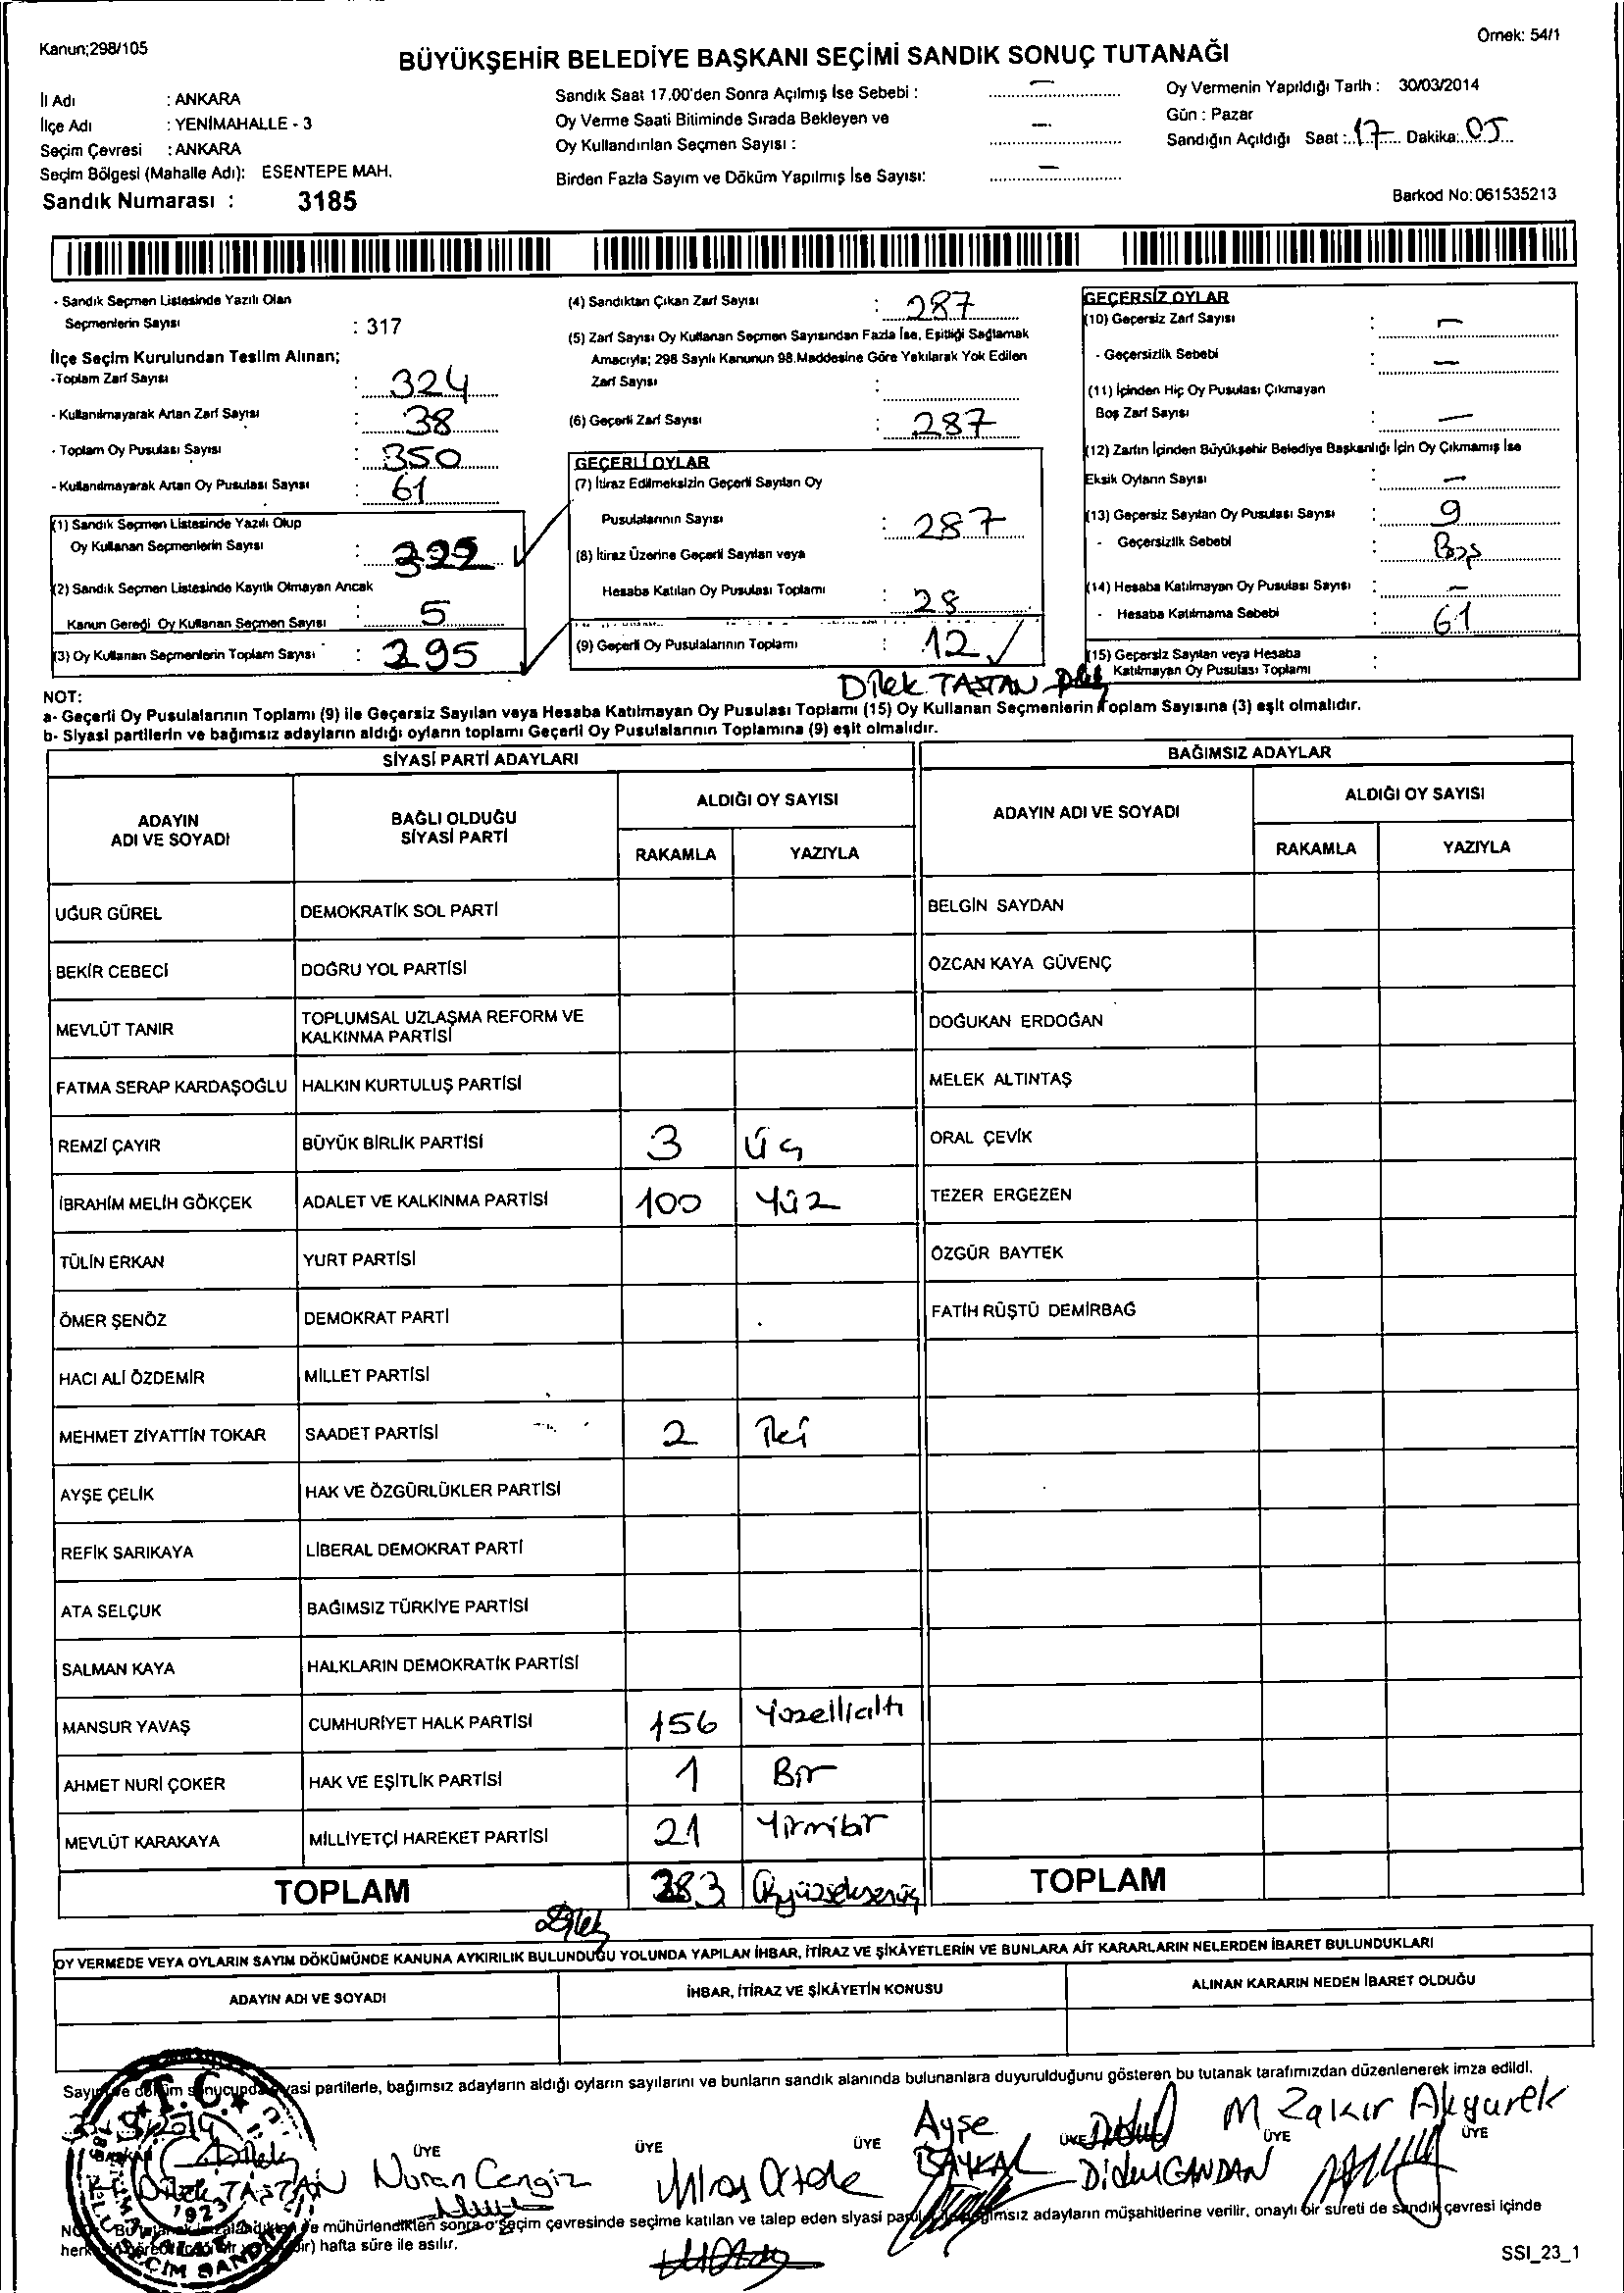 Kanun;298/105
Örnek: 54/1
BÜYÜKŞEHİR BELEDİYE BAŞKANI SEÇİMİ SANDIK SONUÇ TUTANAĞI
İl Adı : ANKARA
İlçe Adı : YENİMAHALLE - 3
Seçim Çevresi : ANKARA
Seçim Bölgesi (Mahalle Adı): ESENTEPE MAH.
Sandık Numarası : 3185
Sandık Saat 17.00'den Sonra Açılmış İse Sebebi : —
Oy Verme Saati Bitiminde Sırada Bekleyen ve
Oy Kullandırılan Seçmen Sayısı : —
Birden Fazla Sayım ve Döküm Yapılmış İse Sayısı: —
Oy Vermenin Yapıldığı Tarih : 30/03/2014
Gün : Pazar
Sandığın Açıldığı Saat : 17 Dakika: 05
Barkod No: 061535213
- Sandık Seçmen Listesinde Yazılı Olan
Seçmenlerin Sayısı : 317
İlçe Seçim Kurulundan Teslim Alınan;
-Toplam Zarf Sayısı : 324
- Kullanılmayarak Artan Zarf Sayısı : 38
- Toplam Oy Pusulası Sayısı : 350
- Kullanılmayarak Artan Oy Pusulası Sayısı : 61
(1) Sandık Seçmen Listesinde Yazılı Olup
Oy Kullanan Seçmenlerin Sayısı :
(2) Sandık Seçmen Listesinde Kayıtlı Olmayan Ancak
Kanun Gereği Oy Kullanan Seçmen Sayısı : 5
(3) Oy Kullanan Seçmenlerin Toplam Sayısı : 295
(4) Sandıktan Çıkan Zarf Sayısı : 287
(5) Zarf Sayısı Oy Kullanan Seçmen Sayısından Fazla İse, Eşitliği Sağlamak
Amacıyla; 298 Sayılı Kanunun 98.Maddesine Göre Yakılarak Yok Edilen
Zarf Sayısı :
(6) Geçerli Zarf Sayısı : 287
GEÇERLİ OYLAR
(7) İtiraz Edilmeksizin Geçerli Sayılan Oy
Pusulalarının Sayısı : 287
(8) İtiraz Üzerine Geçerli Sayılan veya
Hesaba Katılan Oy Pusulası Toplamı : 28
(9) Geçerli Oy Pusulalarının Toplamı : 12
GEÇERSİZ OYLAR
(10) Geçersiz Zarf Sayısı : —
- Geçersizlik Sebebi : —
(11) İçinden Hiç Oy Pusulası Çıkmayan
Boş Zarf Sayısı : —
(12) Zarfın İçinden Büyükşehir Belediye Başkanlığı İçin Oy Çıkmamış İse
Eksik Oyların Sayısı : —
(13) Geçersiz Sayılan Oy Pusulası Sayısı : 9
- Geçersizlik Sebebi : Boş
(14) Hesaba Katılmayan Oy Pusulası Sayısı : —
- Hesaba Katılmama Sebebi : 61
(15) Geçersiz Sayılan veya Hesaba
Katılmayan Oy Pusulası Toplamı :
Dilek TAŞTAN
NOT:
a- Geçerli Oy Pusulalarının Toplamı (9) ile Geçersiz Sayılan veya Hesaba Katılmayan Oy Pusulası Toplamı (15) Oy Kullanan Seçmenlerin Toplam Sayısına (3) eşit olmalıdır.
b- Siyasi partilerin ve bağımsız adayların aldığı oyların toplamı Geçerli Oy Pusulalarının Toplamına (9) eşit olmalıdır.
SİYASİ PARTİ ADAYLARI
BAĞIMSIZ ADAYLAR
ADAYIN ADI VE SOYADI
BAĞLI OLDUĞU SİYASİ PARTİ
ALDIĞI OY SAYISI
RAKAMLA YAZIYLA
ADAYIN ADI VE SOYADI
ALDIĞI OY SAYISI
RAKAMLA YAZIYLA
UĞUR GÜREL DEMOKRATİK SOL PARTİ BELGİN SAYDAN
BEKİR CEBECİ DOĞRU YOL PARTİSİ ÖZCAN KAYA GÜVENÇ
MEVLÜT TANIR TOPLUMSAL UZLAŞMA REFORM VE KALKINMA PARTİSİ DOĞUKAN ERDOĞAN
FATMA SERAP KARDAŞOĞLU HALKIN KURTULUŞ PARTİSİ MELEK ALTINTAŞ
REMZİ ÇAYIR BÜYÜK BİRLİK PARTİSİ 3 Üç ORAL ÇEVİK
İBRAHİM MELİH GÖKÇEK ADALET VE KALKINMA PARTİSİ 100 Yüz TEZER ERGEZEN
TÜLİN ERKAN YURT PARTİSİ ÖZGÜR BAYTEK
ÖMER ŞENÖZ DEMOKRAT PARTİ FATİH RÜŞTÜ DEMİRBAĞ
HACI ALİ ÖZDEMİR MİLLET PARTİSİ
MEHMET ZİYATTİN TOKAR SAADET PARTİSİ 2 İki
AYŞE ÇELİK HAK VE ÖZGÜRLÜKLER PARTİSİ
REFİK SARIKAYA LİBERAL DEMOKRAT PARTİ
ATA SELÇUK BAĞIMSIZ TÜRKİYE PARTİSİ
SALMAN KAYA HALKLARIN DEMOKRATİK PARTİSİ
MANSUR YAVAŞ CUMHURİYET HALK PARTİSİ 156 Yüzellialtı
AHMET NURİ ÇOKER HAK VE EŞİTLİK PARTİSİ 1 Bir
MEVLÜT KARAKAYA MİLLİYETÇİ HAREKET PARTİSİ 21 Yirmibir
TOPLAM 283 TOPLAM
Dilek
OY VERMEDE VEYA OYLARIN SAYIM DÖKÜMÜNDE KANUNA AYKIRILIK BULUNDUĞU YOLUNDA YAPILAN İHBAR, İTİRAZ VE ŞİKÂYETLERİN VE BUNLARA AİT KARARLARIN NELERDEN İBARET BULUNDUKLARI
ADAYIN ADI VE SOYADI İHBAR, İTİRAZ VE ŞİKÂYETİN KONUSU ALINAN KARARIN NEDEN İBARET OLDUĞU
Sayım ve döküm sonucunda siyasi partilerle, bağımsız adayların aldığı oyların sayılarını ve bunların sandık alanında bulunanlara duyurulduğunu gösteren bu tutanak tarafımızdan düzenlenerek imza edildi.
T.C.
BAŞKAN ÜYE ÜYE ÜYE ÜYE ÜYE ÜYE
Dilek TAŞTAN Nuran Cengiz Ayşe BAYKAL Didem CANDAN M Zakir Akyürek
1923
NOT: Bu tutanak imzalandıktan ve mühürlendikten sonra o seçim çevresinde seçime katılan ve talep eden siyasi parti bağımsız adayların müşahitlerine verilir, onaylı bir sureti de sandık çevresi içinde
hafta süre ile asılır.
SSI_23_1